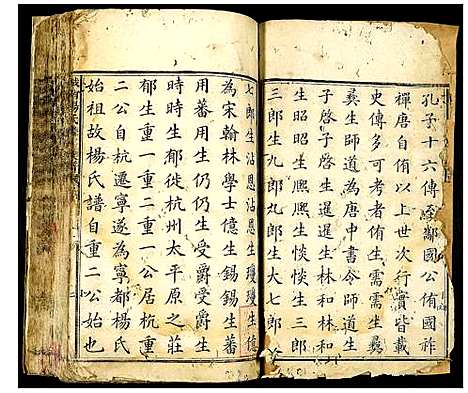 孔子十六傳至鄰國公侑國祚
禪唐自侑以上世次行實皆載
史傳多可考者侑生需需生彞
彞生師道為唐中書令師道生
子啓子啓生暹暹生林和林和
生昭昭生熙熙生惔惔生三郎
三郎生九郎九郎生大七郎
七郎生沾恩沾恩生瓊瓊生億
為宋翰林學士億生錫錫生蕃
用蕃用生仍仍生受爵受爵生
時時生郁徙杭州太平原之莊
郁生重一重二重一公居杭重
二公自杭遷寧遂為寧都楊氏
始祖故楊氏譜自重二公始也